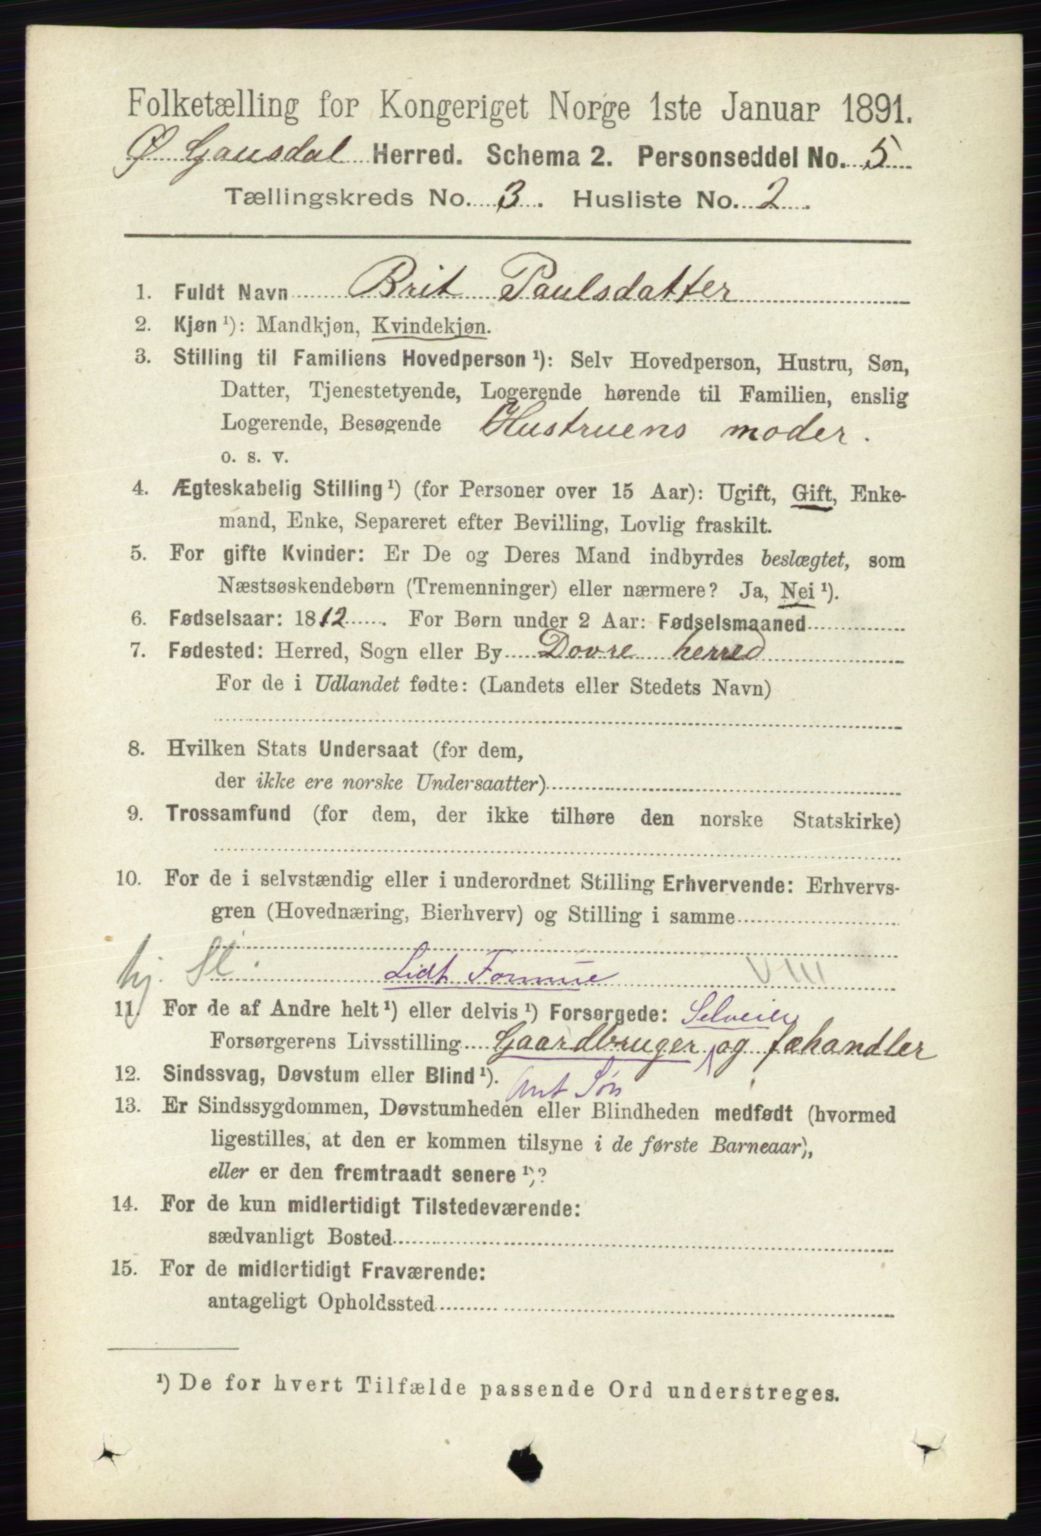 Folketælling for Kongeriget Norge 1ste Januar 1891.
Ø. Gausdal Herred. Schema 2. Personseddel No. 5
Tællingskreds No. 3. Husliste No. 2.
1. Fuldt Navn Brit Paulsdatter
2. Kjøn ¹): Mandkjøn, Kvindekjøn.
3. Stilling til Familiens Hovedperson ¹): Selv Hovedperson, Hustru, Søn,
Datter, Tjenestetyende, Logerende hørende til Familien, enslig
Logerende, Besøgende Hustruens moder.
o. s. v.
4. Ægteskabelig Stilling ¹) (for Personer over 15 Aar): Ugift, Gift, Enke-
mand, Enke, Separeret efter Bevilling, Lovlig fraskilt.
5. For gifte Kvinder: Er De og Deres Mand indbyrdes beslægtet, som
Næstsøskendebørn (Tremenninger) eller nærmere? Ja, Nei ¹).
6. Fødselsaar: 1812. For Børn under 2 Aar: Fødselsmaaned
7. Fødested: Herred, Sogn eller By Dovre herred
For de i Udlandet fødte: (Landets eller Stedets Navn)
8. Hvilken Stats Undersaat (for dem,
der ikke ere norske Undersaatter)
9. Trossamfund (for dem, der ikke tilhøre den norske Statskirke)
10. For de i selvstændig eller i underordnet Stilling Erhvervende: Erhvervs-
gren (Hovednæring, Bierhverv) og Stilling i samme
hj. Sl. Lidt Formue VIII
11. For de af Andre helt ¹) eller delvis ¹) Forsørgede: Selveier
Forsørgerens Livsstilling Gaardbruger og fæhandler
12. Sindssvag, Døvstum eller Blind ¹).
Søn
13. Er Sindssygdommen, Døvstumheden eller Blindheden medfødt (hvormed
ligestilles, at den er kommen tilsyne i de første Barneaar),
eller er den fremtraadt senere ¹)?
14. For de kun midlertidigt Tilstedeværende:
sædvanligt Bosted
15. For de midlertidigt Fraværende:
antageligt Opholdssted
¹) De for hvert Tilfælde passende Ord understreges.